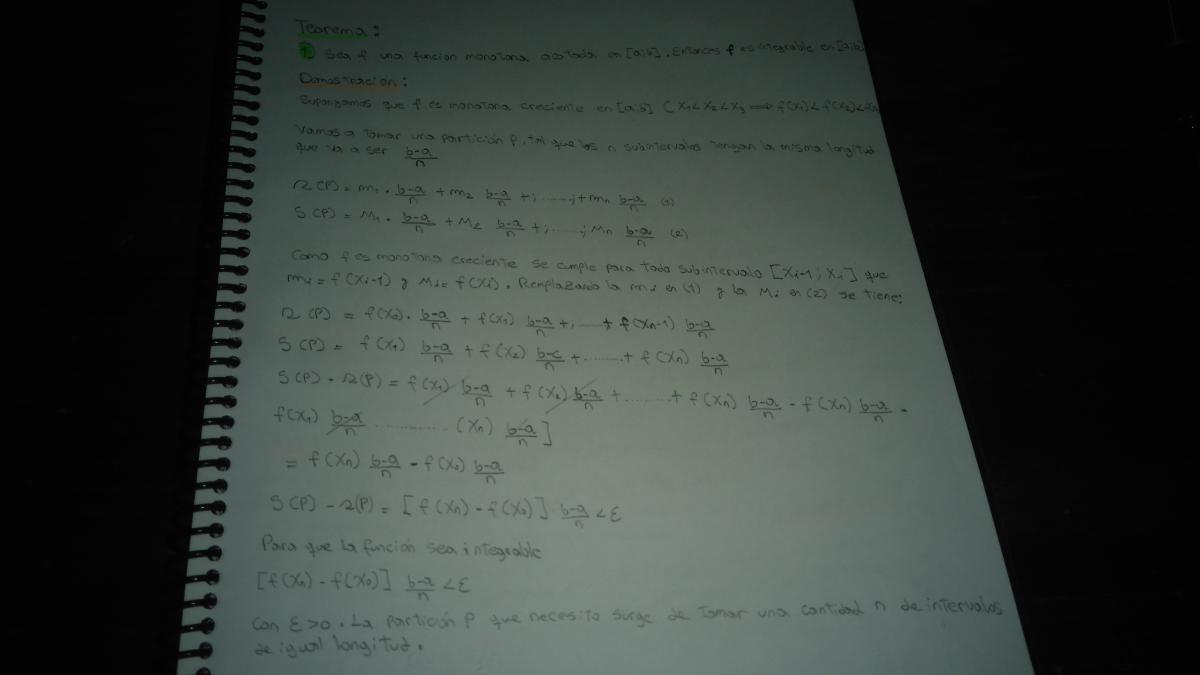 Teorema:
1 Sea f una funcion monotona acotada en [a;b]. Entonces f es integrable en [a;b]
Demostración:
Supongamos que f es monotona creciente en [a;b] ( X₁<X₂<X₃ ⟹ f(X₁)<f(X₂)<f(X₃
Vamos a tomar una partición P, tal que los n subintervalos tengan la misma longitud
que va a ser b-a/n
s(P) = m₁ . b-a/n + m₂ b-a/n +; ......; + mn b-a/n (1)
S(P) = M₁ . b-a/n + M₂ b-a/n +; ......; Mn b-a/n (2)
Como f es monotona creciente se cumple para todo subintervalo [Xi-1 ; Xi] que
mi = f(Xi-1) y Mi = f(Xi). Remplazando la mi en (1) y la Mi en (2) se tiene:
s(P) = f(X₀) . b-a/n + f(X₁) b-a/n +; ......+ f(Xn-1) b-a/n
S(P) = f(X₁) b-a/n + f(X₂) b-c/n + ........+ f(Xn) b-a/n
S(P) - s(P) = f(X₁) b-a/n + f(X₂) b-a/n + ......... + f(Xn) b-a/n - f(Xn) b-a/n -
f(X₁) b-a/n ............. (Xn) b-a/n ]
= f(Xn) b-a/n - f(X₀) b-a/n
S(P) - s(P) = [ f(Xn) - f(X₀) ] b-a/n < ε
Para que la función sea integrable
[f(Xn) - f(X₀)] b-a/n < ε
con ε>0. La partición P que necesito surge de tomar una cantidad n de intervalos
de igual longitud.